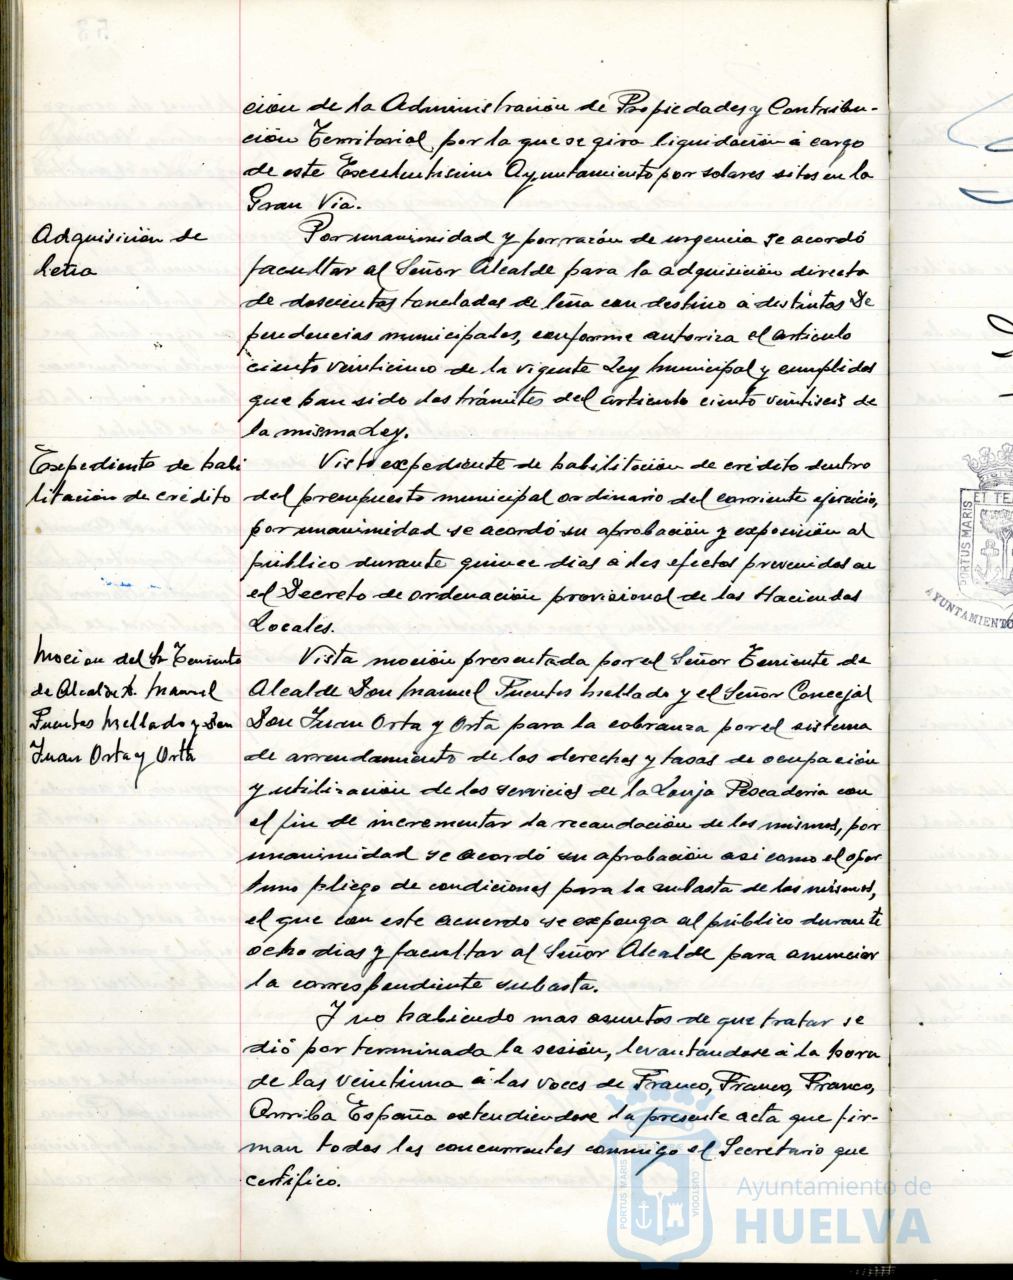 ción de la Administración de Propiedades y Contribu-
ción Territorial, por la que se gira liquidación á cargo
de este Excelentisimo Ayuntamiento por solares sitos en la
Gran Via.
Adquisición de
leña
Por unanimidad y por razón de urgencia se acordó
facultar al Señor Alcalde para la adquisición directa
de doscientas toneladas de leña con destino a distintas De
pendencias municipales, conforme autoriza el articulo
ciento veinticinco de la vigente Ley Municipal y cumplidos
que han sido los trámites del articulo ciento veintiseis de
la misma Ley.
Expediente de habi
litación de crédito
Visto expediente de habilitación de crédito dentro
del presupuesto municipal ordinario del corriente ejercicio,
por unanimidad se acordó su aprobación y exposición al
público durante quince dias á los efectos prevenidos en
el Decreto de ordenación provisional de las Haciendas
Locales.
Moción del Sr Teniente
de Alcalde D. Manuel
Fuentes Mellado y Don
Juan Orta y Orta
Vista moción presentada por el Señor Teniente de
Alcalde Don Manuel Fuentes Mellado y el Señor Concejal
Don Juan Orta y Orta para la cobranza por el sistema
de arrendamiento de los derechos y tasas de ocupación
y utilización de los servicios de la Lonja Pescaderia con
el fin de incrementar la recaudación de los mismos, por
unanimidad se acordó su aprobación asi como el opor
tuno pliego de condiciones para la subasta de los mismos,
el que con este acuerdo se exponga al público durante
ocho dias y facultar al Señor Alcalde para anunciar
la correspondiente subasta.
Y no habiendo mas asuntos de que tratar se
dió por terminada la sesión, levantandose á la hora
de las veintiuna á las voces de Franco, Franco, Franco,
Arriba España extendiendose la presente acta que fir-
man todos los concurrentes conmigo el Secretario que
certifico.
PORTUS MARIS
ET TE
AYUNTAMIENTO
PORTUS MARIS
CUSTODIA
Ayuntamiento de
HUELVA